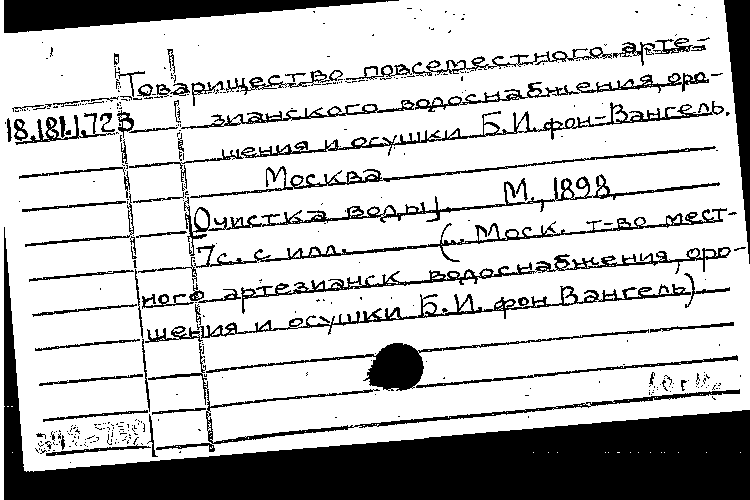 Товарищество повсеместного арте-
18.181.1.723
зианского водоснабжения, оро-
шения и осушки Б.И. фон-Вангель.
Москва.
[Очистка воды]. М., 1898.
7с. с илл. (... Моск. т-во мест-
ного артезианск водоснабжения, оро-
шения и осушки Б.И. фон Вангель).